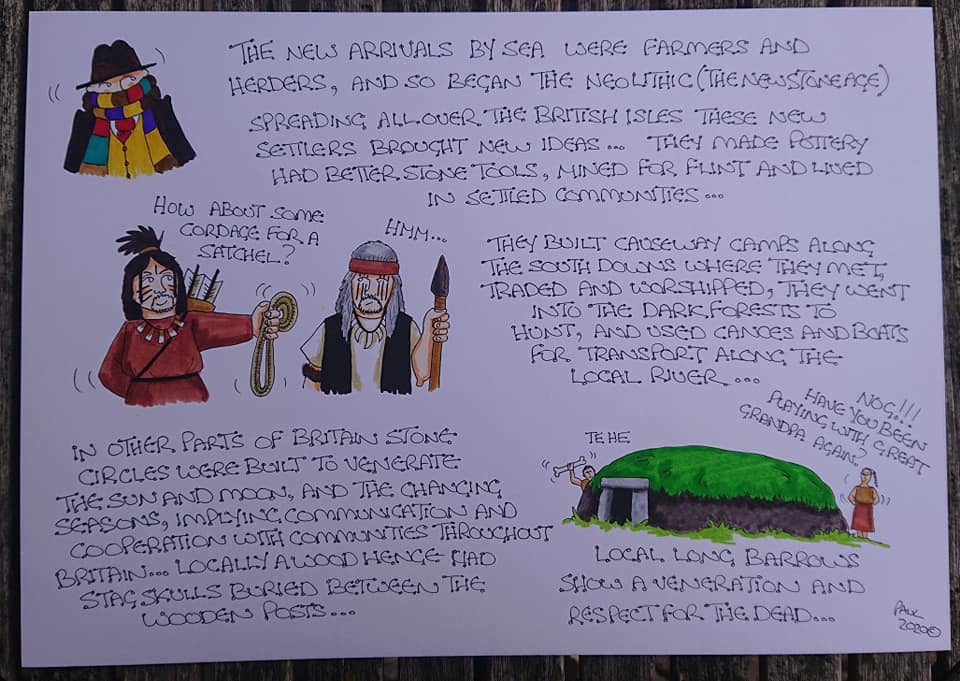 THE NEW ARRIVALS BY SEA WERE FARMERS AND
HERDERS, AND SO BEGAN THE NEOLITHIC (THE NEW STONE AGE)
SPREADING ALL OVER THE BRITISH ISLES THESE NEW
SETTLERS BROUGHT NEW IDEAS... THEY MADE POTTERY
HAD BETTER STONE TOOLS, MINED FOR FLINT AND LIVED
IN SETTLED COMMUNITIES...
HOW ABOUT SOME
CORDAGE FOR A
SATCHEL?
HMM...
THEY BUILT CAUSEWAY CAMPS ALONG
THE SOUTH DOWNS WHERE THEY MET,
TRADED AND WORSHIPPED, THEY WENT
INTO THE DARK FORESTS TO
HUNT, AND USED CANOES AND BOATS
FOR TRANSPORT ALONG THE
LOCAL RIVER...
IN OTHER PARTS OF BRITAIN STONE
CIRCLES WERE BUILT TO VENERATE
THE SUN AND MOON, AND THE CHANGING
SEASONS, IMPLYING COMMUNICATION AND
COOPERATION WITH COMMUNITIES THROUGHOUT
BRITAIN... LOCALLY A WOOD HENGE HAD
STAG SKULLS BURIED BETWEEN THE
WOODEN POSTS...
TE HE
NOG!!!
HAVE YOU BEEN
PLAYING WITH GREAT
GRANDPA AGAIN?
LOCAL LONG BARROWS
SHOW A VENERATION AND
RESPECT FOR THE DEAD...
PAUL
2020©